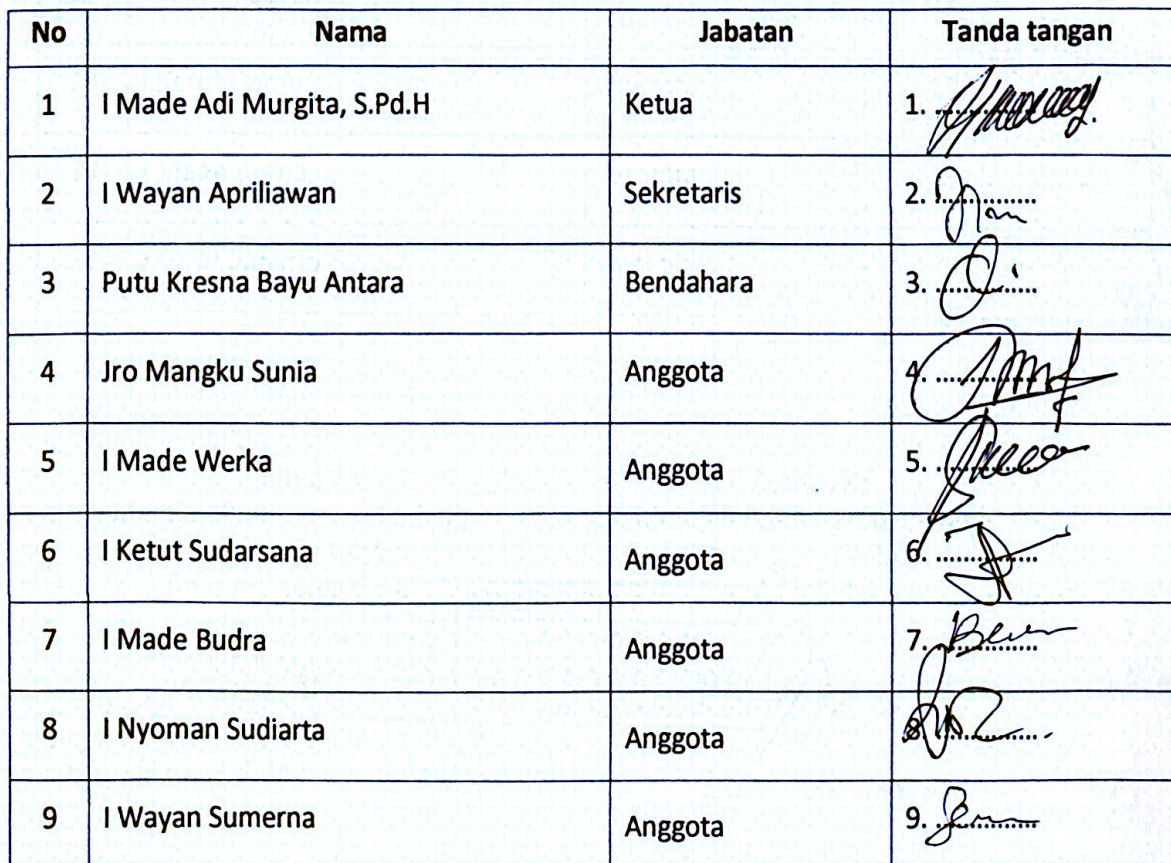 No Nama Jabatan Tanda tangan
1 I Made Adi Murgita, S.Pd.H Ketua 1.
2 I Wayan Apriliawan Sekretaris 2.
3 Putu Kresna Bayu Antara Bendahara 3.
4 Jro Mangku Sunia Anggota 4.
5 I Made Werka Anggota 5.
6 I Ketut Sudarsana Anggota 6.
7 I Made Budra Anggota 7.
8 I Nyoman Sudiarta Anggota 8.
9 I Wayan Sumerna Anggota 9.